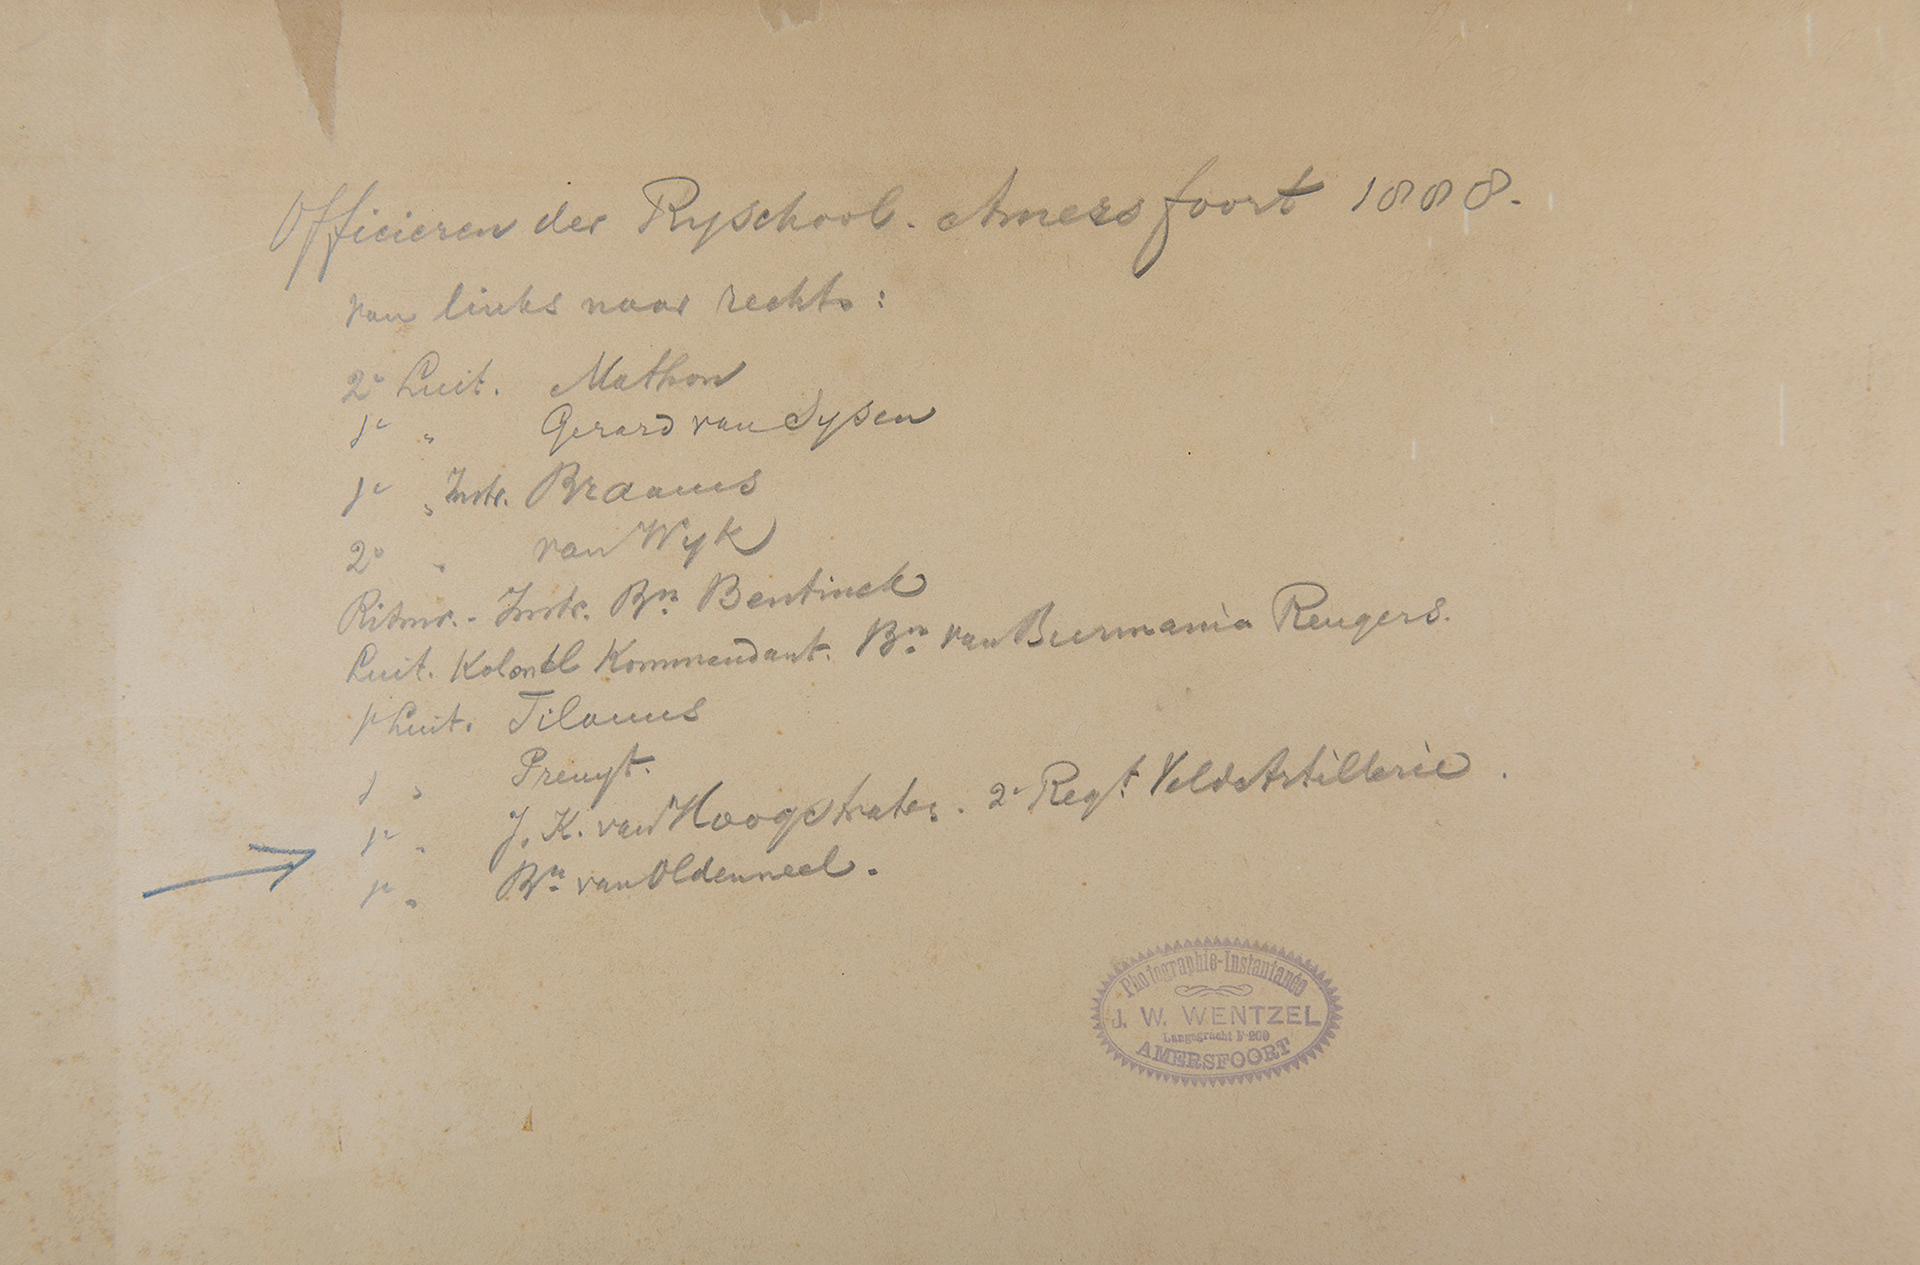 Officieren der Ryschool. Amersfoort 1888.
van links naar rechts:
2e Luit. Mathon
1e " Gerard van Sysen
1e " Instr. Braams
2e " van Wyk
Ritmr. - Instr. Bn. Bentinck
Luit. Kolonel Kommandant. Bn. van Burmania Rengers.
1e Luit. Tilanus
1 " Preuyt.
1e " J. K. van Hoogstraten. 2e Regt. Veld Artillerie.
1e " Bn. van Oldenneel.
Photographie-Instantanée
J. W. WENTZEL
Langegracht F 209
AMERSFOORT